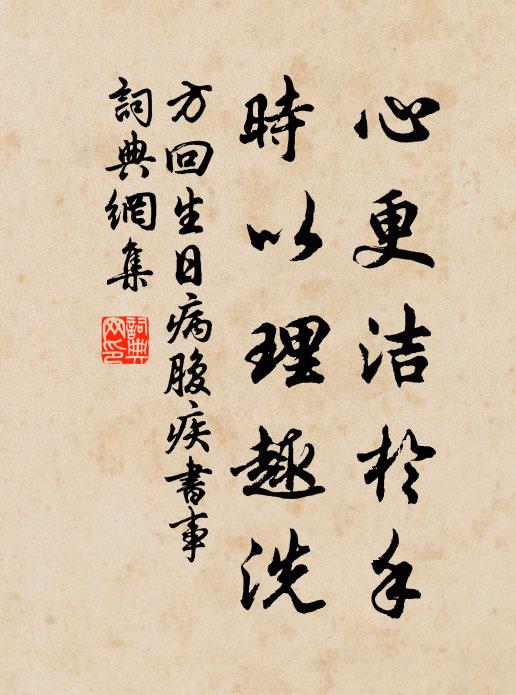 心更洁於手
時以理趣洗
方回生日病腹疾書事
詞典網集
詞典網印